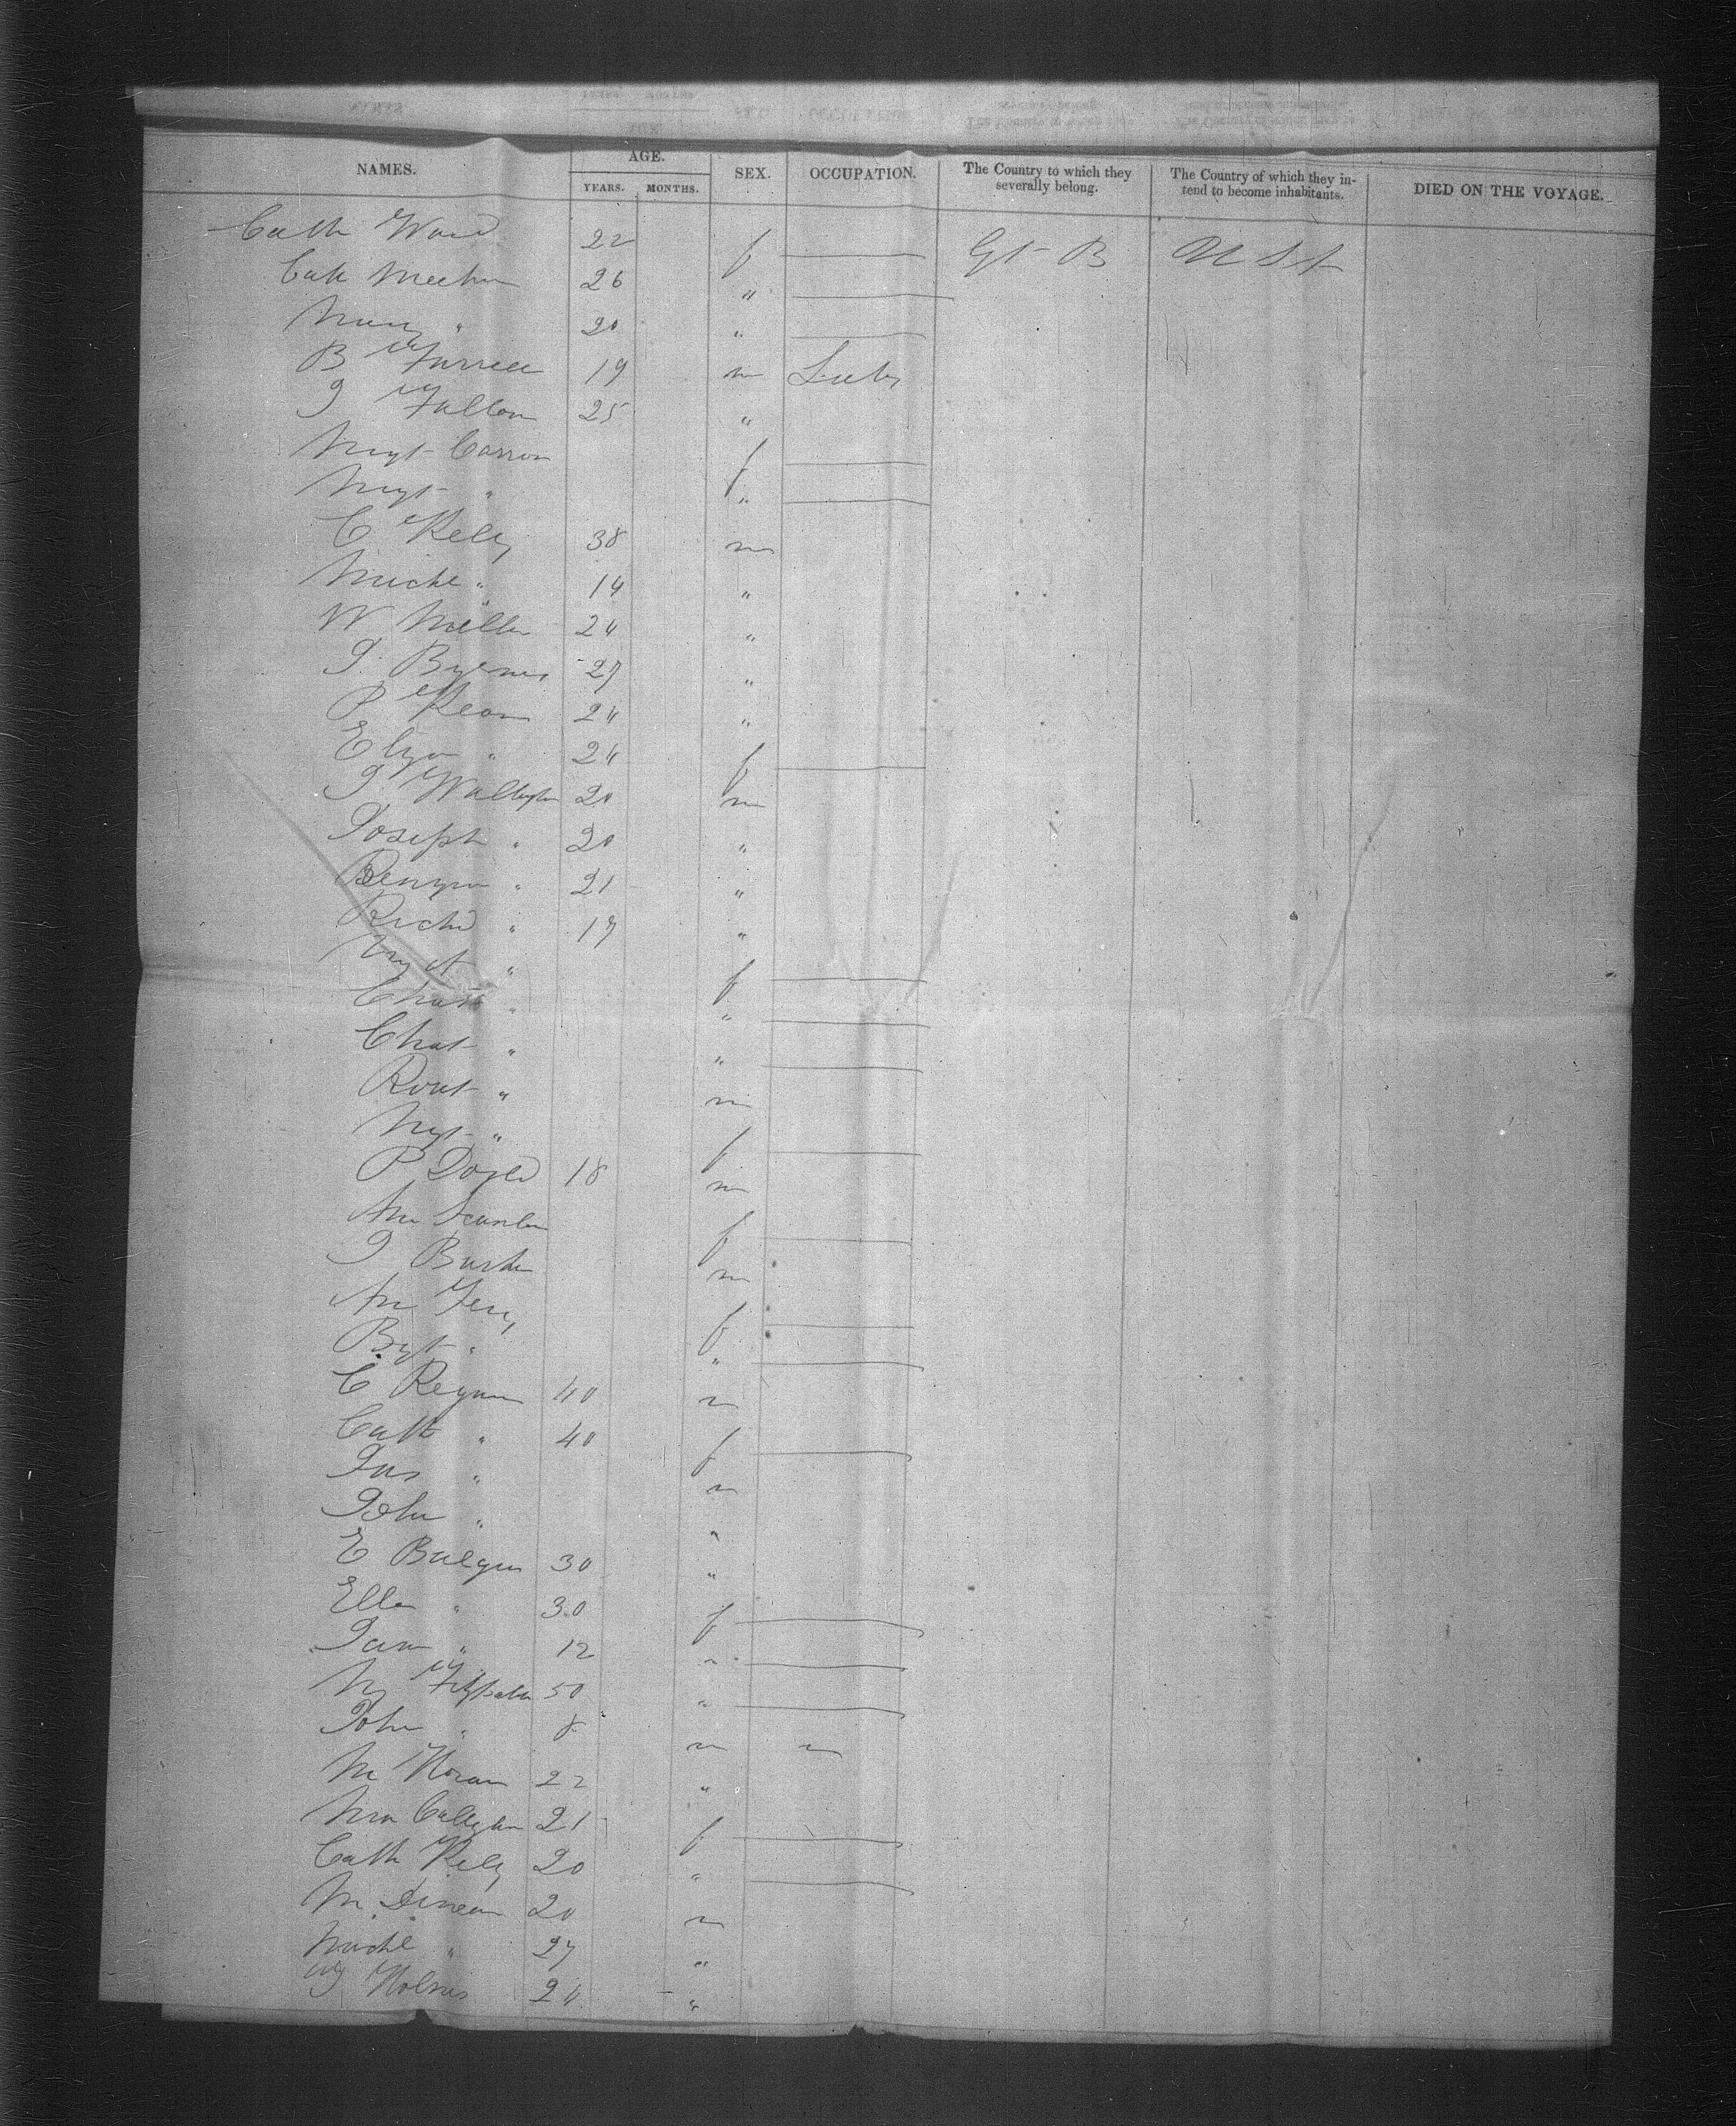 NAMES. AGE. YEARS. MONTHS. SEX. OCCUPATION. The Country to which they severally belong. The Country of which they intend to become inhabitants. DIED ON THE VOYAGE.
Cath Ward 22 f — Gt B U St
Cath Meehan 26 " —
Mary " 20 " —
B Farrell 19 m Labr
J Fallon 25 "
Mgt Carron f —
Mgt " " —
C Kelly 38 m
Michl " 14 "
W Miller 24 "
J. Byrnes 27 "
P Kean 24 "
Eliza " 24 f —
J 20 m
Joseph " 20 "
Benjn " 21 "
Richd " 17 "
" f —
Chat " " —
Chat " " —
Robt " m
Mgt " f —
P Doyle 18 m
Ann Scanlan f —
J Burke m
Ann f —
Bgt " " —
C Regan 40 m
Cath " 40 f —
Jas " m
John " "
E 30 "
Ellen " 30 f —
Jane " 12 " —
50 " —
John " 8 m
M Horan 22 "
21 f —
Cath Kelly 20 " —
M. Dinean 20 m
Michl " 27 "
Holmes 24 "